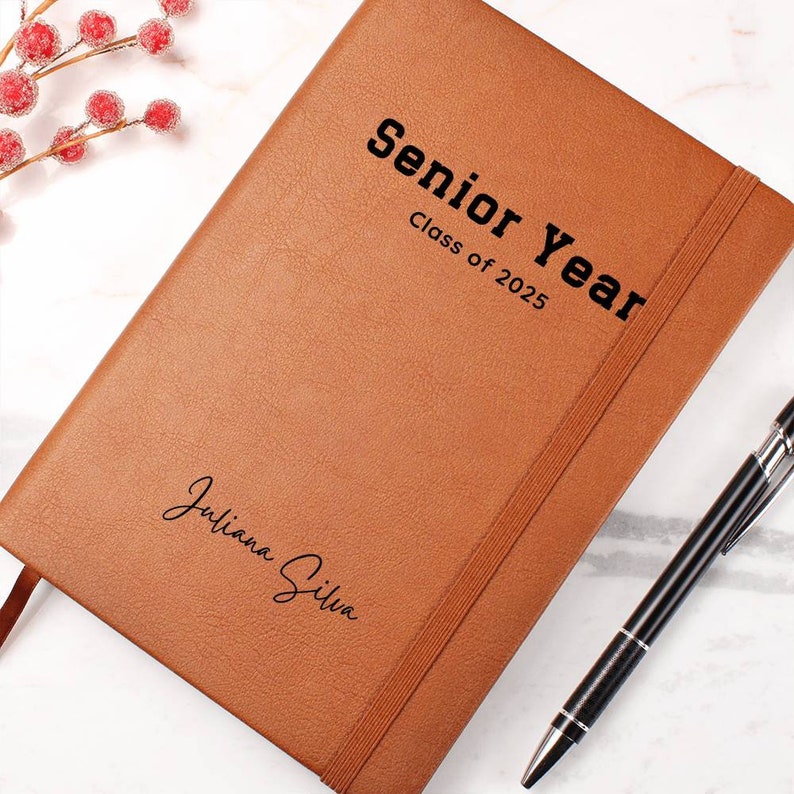 Senior Year
Class of 2025
Juliana Silva